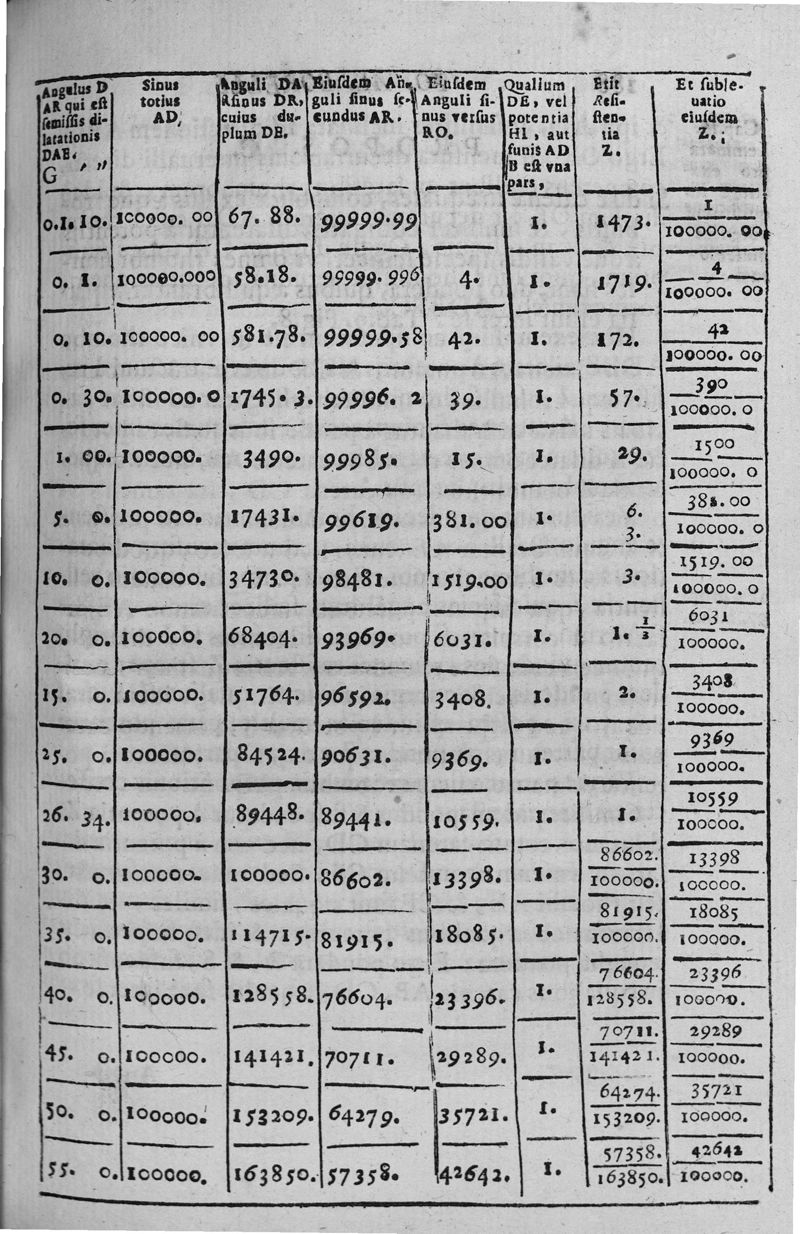 Angulus D AR qui est semissis dilatationis DAE. G , ,, | Sinus totius AD, | Anguli DA Rsinus DR, cuius duplum DE. | Eiusdem Anguli sinus secundus AR. | Eiusdem Anguli sinus versus RO. | Qualium DE, vel potentia HI, aut funis AD B est vna pars, | Erit Resistentia Z. | Et subleuatio eiusdem Z.
0.1. 10. 100000. 00 67. 88. 99999.99 1. 1473. 1
100000. 00
0. 1. 100000.000 58.18. 99999. 996 4. 1. 1719. 4
100000. 00
0. 10. 100000. 00 581.78. 99999.58 42. 1. 172. 42
100000. 00
0. 30. 100000.0 1745. 3. 99996. 2 39. 1. 57. 390
100000. 0
1. 00. 100000. 3490. 99985. 15. 1. 29. 1500
100000. 0
5. 0. 100000. 17431. 99619. 381.00 1. 6. 381.00
3. 100000. 0
10. 0. 100000. 34730. 98481. 1519.00 1. 3. 1519. 00
100000. 0
20. 0. 100000. 68404. 93969. 6031. 1. 1. 1/3 6031
100000.
15. 0. 100000. 51764. 96592. 3408. 1. 2. 3408
100000.
25. 0. 100000. 84524. 90631. 9369. 1. 1. 9369
100000.
26. 34. 100000. 89448. 89441. 10559. 1. 1. 10559
100000.
30. 0. 100000. 100000. 86602. 13398. 1. 86602. 13398
100000. 100000.
35. 0. 100000. 114715. 81915. 18085. 1. 81915. 18085
100000. 100000.
40. 0. 100000. 128558. 76604. 23396. 1. 76604. 23396
128558. 100000.
45. 0. 100000. 141421. 70711. 29289. 1. 70711. 29289
141421. 100000.
50. 0. 100000. 153209. 64279. 35721. 1. 64274. 35721
153209. 100000.
55. 0. 100000. 163850. 57358. 42642. 1. 57358. 42642
163850. 100000.